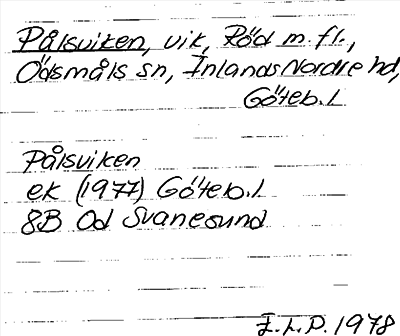 Pålsviken, vik, Röd m. fl.,
Ödsmåls sn, Inlands Nordre hd,
Göteb. l
Pålsviken
ek (1977) Göteb. l
8B 0d Svanesund
I.L.P. 1978